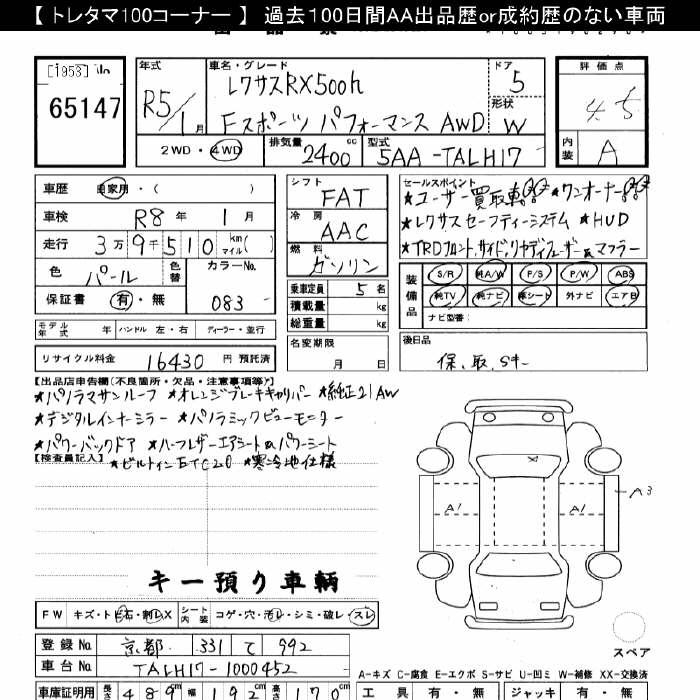 【 トレタマ100コーナー 】 過去100日間AA出品歴or成約歴のない車両
[1953] No
65147
年式
R5/1月
車名・グレード
レクサスRX500h
Fスポーツ パフォーマンス AWD
ドア
5
形状
W
評価点
4.5
内装
A
2WD・4WD
排気量 2400 cc
型式 5AA-TALH17
車歴 自家用・( )
車検 R8年 1月
走行 3万9千510 km マイル( )
色 パール 色替 カラーNo. 083
保証書 有・無
モデル年式 年 ハンドル 左・右 ディーラー・並行
リサイクル料金 16430 円 預託済
シフト
FAT
冷房
AAC
燃料
ガソリン
乗車定員 5 名
積載量 kg
総重量 kg
名変期限
月 日
セールスポイント
★ユーザー買取車 ★ワンオーナー
★レクサスセーフティーシステム ★HUD
★TRDフロント,サイド,リヤディフューザー&マフラー
装備品
S/R 純A/W P/S P/W ABS
純TV 純ナビ 革シート 外ナビ エアB
ナビ型番:
後日品
保、取、Sキー
【出品店申告欄(不良箇所・欠品・注意事項等)】
★パノラマサンルーフ ★オレンジブレーキキャリパー ★純正21AW
★デジタルインナーミラー ★パノラミックビューモニター
★パワーバックドア ★ハーフレザーエアシート&パワーシート
【検査員記入】
★ビルトインETC2.0 ★寒冷地仕様
A1
A1
A3
キー預り車輌
FW キズ・ト石・割レX シート内装 コゲ・穴・汚レ・シミ・破レ・スレ
登録No 京都 331 て 992
車台No TALH17-1000452
車庫証明用 長さ 489 cm 幅 192 cm 高さ 170 cm
スペア
A-キズ C-腐食 E-エクボ S-サビ U-凹ミ W-補修 XX-交換済
工具 有・無 ジャッキ 有・無